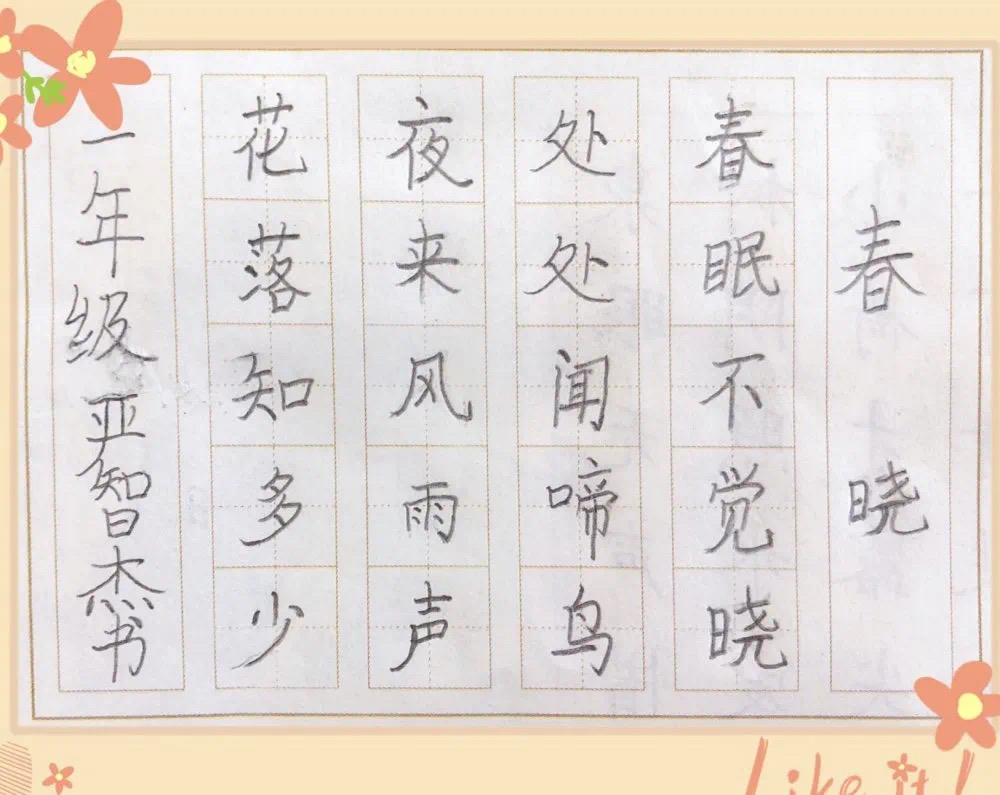 春晓
春眠不觉晓
处处闻啼鸟
夜来风雨声
花落知多少
一年级亚智杰书
Like it!